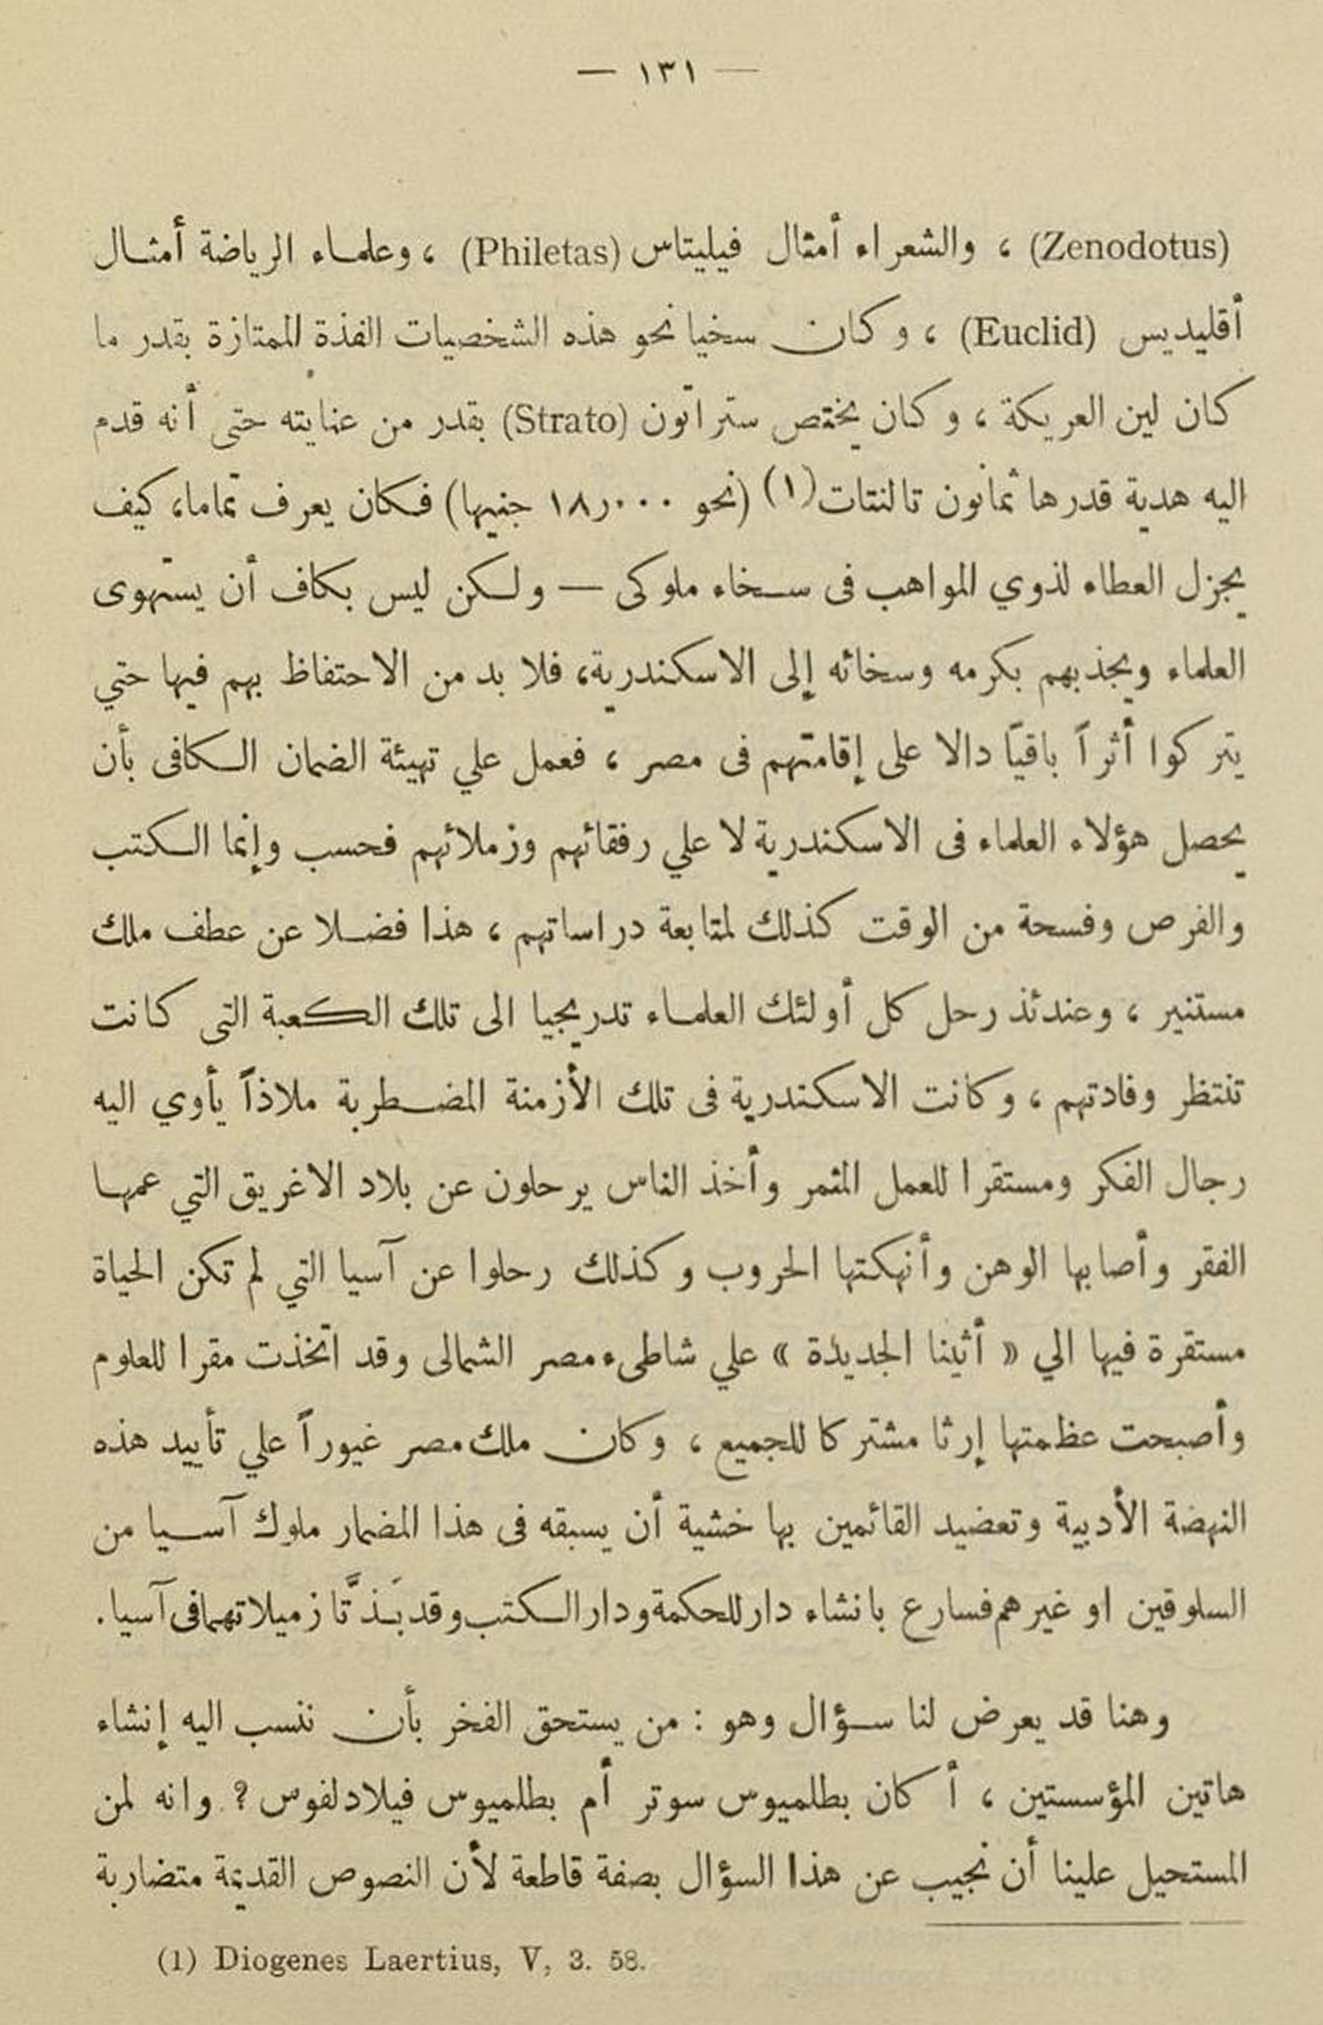 — ١٣١ —
(Zenodotus) ، والشعراء أمثال فيليتاس (Philetas) ، وعلماء الرياضة أمثال
أقليديس (Euclid) ، وكان سخيا نحو هذه الشخصيات الفذة الممتازة بقدر ما
كان لين العريكة ، وكان يختص ستراتون (Strato) بقدر من عنايته حتى أنه قدم
اليه هدية قدرها ثمانون تالنتات (١) (نحو ١٨٫٠٠٠ جنيها) فكان يعرف تماما، كيف
يجزل العطاء لذوي المواهب فى سخاء ملوكى — ولكن ليس بكاف أن يستهوى
العلماء ويجذبهم بكرمه وسخائه إلى الاسكندرية، فلا بد من الاحتفاظ بهم فيها حتي
يتركوا أثراً باقيًا دالا على إقامتهم فى مصر ، فعمل علي تهيئة الضمان الكافى بأن
يحصل هؤلاء العلماء فى الاسكندرية لا علي رفقائهم وزملائهم فحسب وإنما الكتب
والفرص وفسحة من الوقت كذلك لمتابعة دراساتهم ، هذا فضلا عن عطف ملك
مستنير ، وعندئذ رحل كل أولئك العلماء تدريجيا الى تلك الكعبة التى كانت
تنتظر وفادتهم ، وكانت الاسكندرية فى تلك الأزمنة المضطربة ملاذاً يأوي اليه
رجال الفكر ومستقرا للعمل المثمر وأخذ الناس يرحلون عن بلاد الاغريق التي عمها
الفقر وأصابها الوهن وأنهكتها الحروب وكذلك رحلوا عن آسيا التي لم تكن الحياة
مستقرة فيها الي « أثينا الجديدة » علي شاطىء مصر الشمالى وقد اتخذت مقرا للعلوم
وأصبحت عظمتها إرثا مشتركا للجميع ، وكان ملك مصر غيوراً علي تأييد هذه
النهضة الأدبية وتعضيد القائمين بها خشية أن يسبقه فى هذا المضمار ملوك آسيا من
السلوقين او غيرهم فسارع بانشاء دار للحكمة ودار الكتب وقد بَذتَّا زميلاتهما فى آسيا.
وهنا قد يعرض لنا سؤال وهو : من يستحق الفخر بأن ننسب اليه إنشاء
هاتين المؤسستين ، أ كان بطلميوس سوتر أم بطلميوس فيلادلفوس ؟ وانه لمن
المستحيل علينا أن نجيب عن هذا السؤال بصفة قاطعة لأن النصوص القديمة متضاربة
(1) Diogenes Laertius, V, 3. 58.